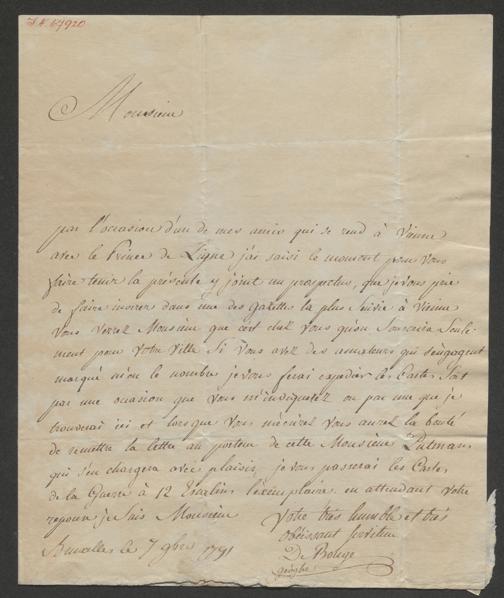 I.N. 67920
Monsieur
par l'occasion d'un de mes amis qui se rend à Vienne
avec le Prince de Ligne j'ai saisi le moment pour vous
faire tenir la présente y joint un prospectus, que je vous prie
de faire inserer dans une des Gazettes la plus suivie à Vienne
Vous verrez Monsieur que c'est chez vous qu'on Souscrira Seule-
ment pour votre ville Si vous avez des amateurs qui s'engagent
marqué m'en le nombre je vous ferai expedier les Cartes Soit
par une occasion que vous m'indiquerez ou par une que je
trouverai ici et lorsque vous m'écrirez vous aurez la bonté
de remettre la lettre au porteur de cette Monsieur
qui s'en chargera avec plaisir, je vous passerai les Cartes
de la Guerre à 12 Escalins l'exemplaire en attendant votre
reponse je Suis Monsieur
Votre très humble et très
obéissant serviteur
Bruxelles le 7 9bre 1791
De
géogphe